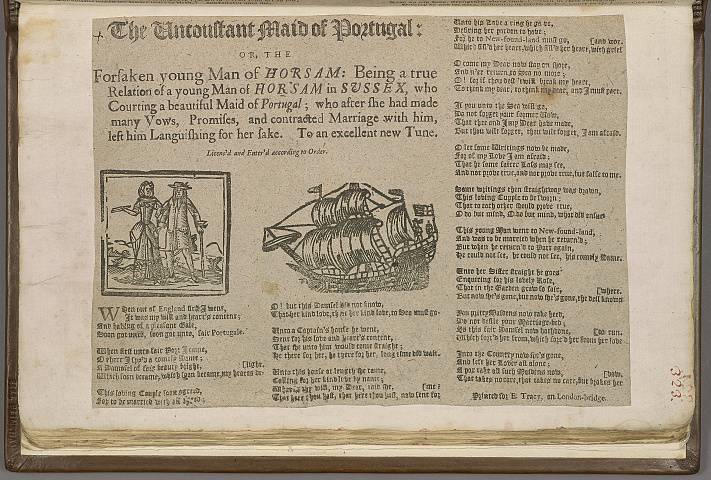 The Unconstant Maid of Portugal:
OR, THE
Forsaken young Man of HORSAM: Being a true
Relation of a young Man of HORSAM in SUSSEX, who
Courting a beautiful Maid of Portugal; who after she had made
many Vows, Promises, and contracted Marriage with him,
left him Languishing for her sake. To an excellent new Tune.
Licens'd and Enter'd according to Order.
When out of England first I went,
It was my will and heart's content;
And having of a pleasant Gale,
Soon got unto, soon got unto, fair Portugale.
When first unto fair Port I came,
O there I spy'd a comely Dame;
A Damsel of fair beauty bright, [light.
Which soon became, which soon became, my hearts de-
This loving Couple soon agreed,
For to be married with all speed;
O! but this Damsel did not know,
That her kind love, that her kind love, to Sea must go.
Unto a Captain's house he went,
Sent for his love and heart's content,
That she unto him would come straight;
He there for her, he there for her, long time did wait.
Unto this house at length she came,
Calling for her kind love by name;
What's thy will, my Dear, said she, [me?
That here thou hast, that here thou hast, now sent for
Unto his Love a ring he gave,
Desiring her pardon to have;
For he to New-found-land must go, [and woe.
Which fill'd her heart, which fill'd her heart, with grief
O come my Dear now stay on shore,
And ne'er return to Sea no more;
O! for if thou dost 'twill break my heart,
To think my dear, to think my dear, and I must part.
If you unto the Sea will go,
Do not forget your former Vow,
That thee and I my Dear have made,
But thou wilt forget, thou wilt forget, I am afraid.
O let some Writings now be made,
For of my Love I am afraid;
That he some fairer Lass may see,
And not prove true, and not prove true, but false to me.
Some writings then straightway was drawn,
This loving Couple to be sworn;
That to each other should prove true,
O do but mind, O do but mind, what did ensue
This young Man went to New-found-land,
And was to be married when he return'd;
But when he return'd to Port again,
He could not see, he could not see, his comely Dame.
Unto her Sister straight he goes
Enquiring for his lovely Rose,
That in the Garden grew so fair, [where.
But now she's gone, but now she's gone, the dell knows
You pretty Maidens now take heed,
Do not defile your Marriage-bed;
As this fair Damsel now hath done, [to run.
Which forc'd her from, which forc'd her from her love
Into the Country now she's gone,
And left her Lover all alone;
A pox take all such Maidens now, [vow.
That takes no care, that takes no care, but breaks her
Printed for E. Tracy, on London-bridge.
323.